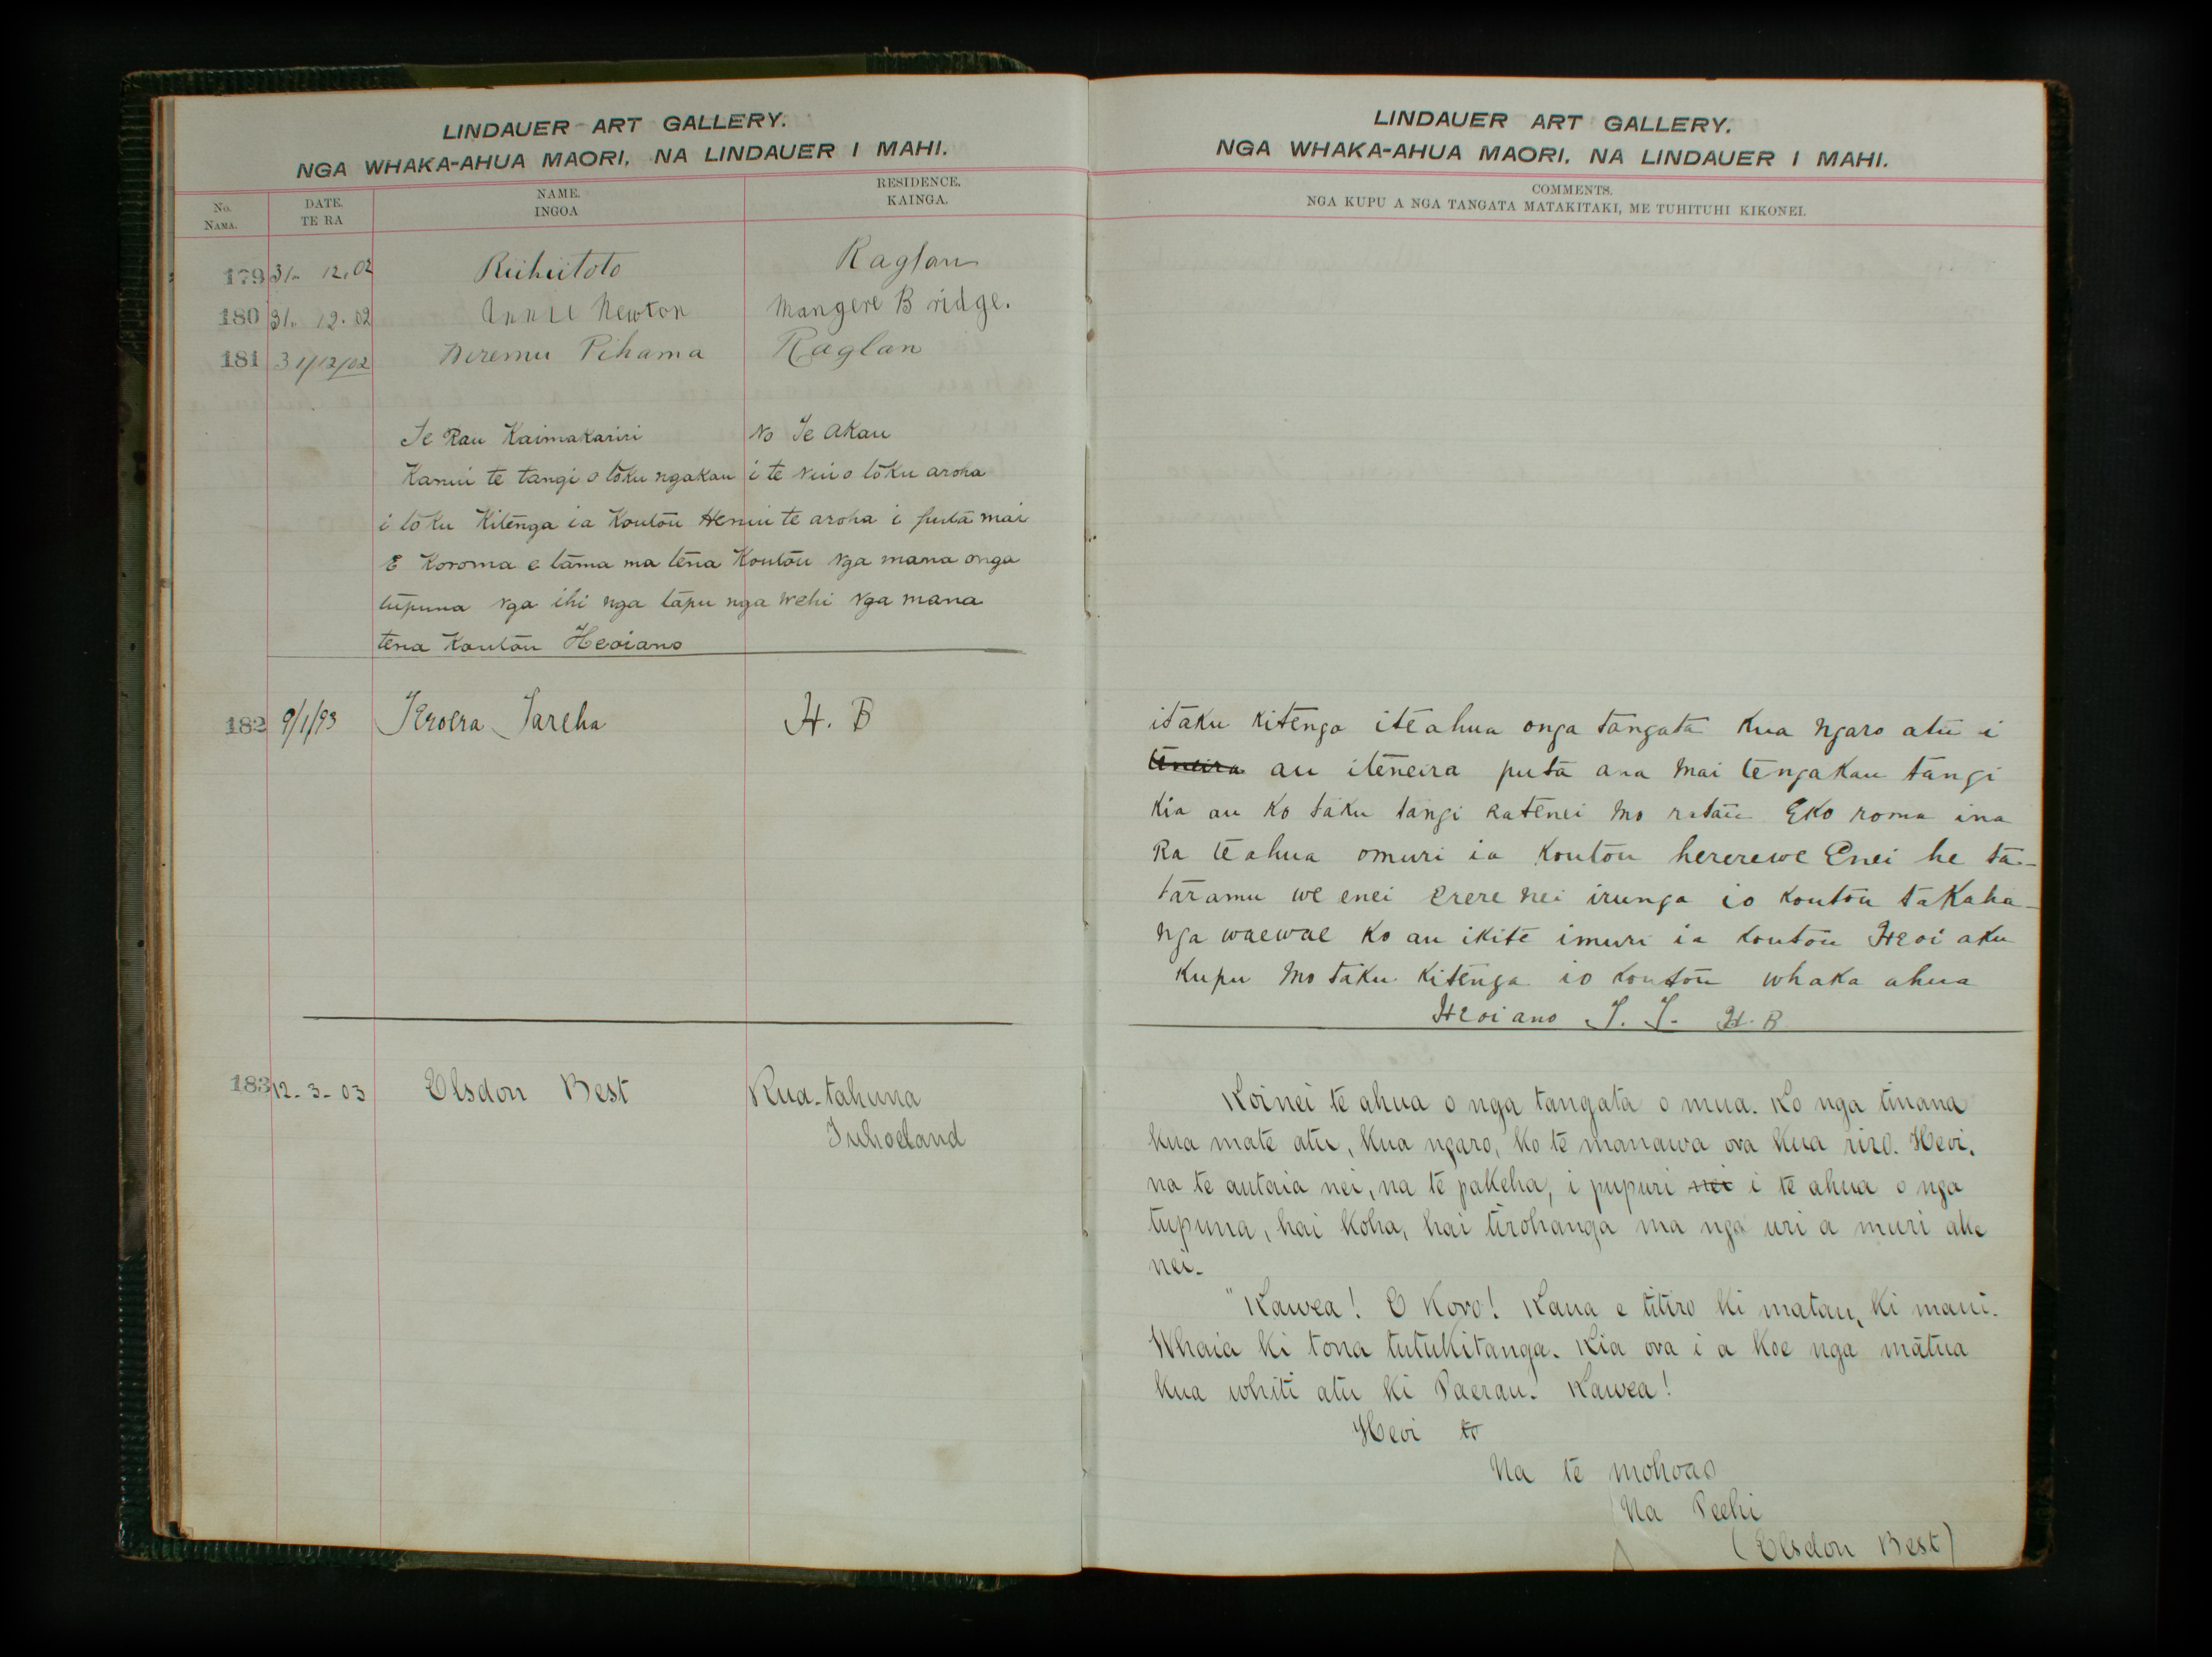 LINDAUER ART GALLERY.
NGA WHAKA-AHUA MAORI, NA LINDAUER I MAHI.
No. NAMA.
DATE. TE RA
NAME. INGOA
RESIDENCE. KAINGA.
179 31. 12.02 Riihiitoto Raglan
180 31. 12.02 Annie Newton Mangere Bridge.
181 31/12/02 Neremu Pihama Raglan
Te Rau Kaimakariri No Te Akau
Kanui te tangi o toku ngakau i te nui o toku aroha
i toku Kitenga ia Koutou Henui te aroha i puta mai
E Koroma e tama ma tena Koutou nga mana onga
tupuna nga ihi nga tapu nga wehi nga mana
tena Koutou Heoiano
182 9/1/93 Teroera Tareha H. B
183 12-3-03 Elsdon Best Rua-tahuna
Tuhoeland
LINDAUER ART GALLERY.
NGA WHAKA-AHUA MAORI, NA LINDAUER I MAHI.
COMMENTS.
NGA KUPU A NGA TANGATA MATAKITAKI, ME TUHITUHI KIKONEI.
itaku kitenga iteahua onga tangata Kua Ngaro atu i
teneira au iteneira puta ana mai tengakau tangi
kia au ko taku tangi katenei mo ratau Eko roma ina
Ra teahua omuri ia Koutou hererewe Enei he ta-
taramu we enei erere nei irunga io koutou takaha-
nga waewae Ko au ikite imuri ia koutou Heoi aku
Kupu mo taku Kitenga io koutou whaka ahua
Heoiano T. T. H. B
Koinei te ahua o nga tangata o mua. Ko nga tinana
kua mate atu, kua ngaro, ko te manawa ora kua riro. Heoi,
na te autaia nei, na te pakeha, i pupuri nei i te ahua o nga
tupuna, hai koha, hai tirohanga ma nga uri a muri ake
nei.
"Kawea! E Koro! Kaua e titiro ki matau, ki maui.
Whaia ki tona tutukitanga. Kia ora i a koe nga mātua
kua whiti atu ki Paerau. Kawea!
Heoi to
Na te mohoao
Na Peehi
(Elsdon Best)